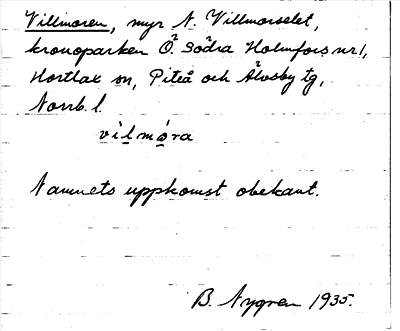 Villmoren, myr N. Villmorselet,
kronoparken Ö. Södra Holmfors nr 1,
Hortlax sn, Piteå och Älvsby tg,
Norrb. l.
vìlmóra
Namnets uppkomst obekant.
B. Nygren 1935.